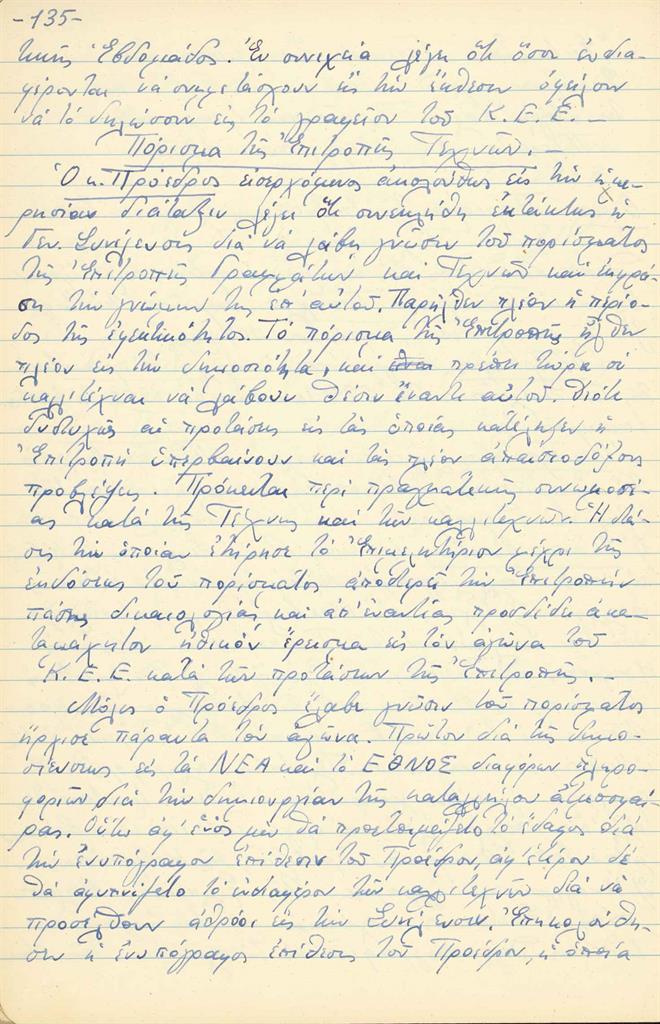 -135-
τικῆς Ἑβδομάδος. Ἐν συνεχείᾳ λέγει ὅτι ὅσοι ἐνδια-
φέρονται νά συμμετάσχουν εἰς τήν ἔκθεσιν ὀφείλουν
νά τό δηλώσουν εἰς τό γραφεῖον τοῦ Κ.Ε.Ε.-
Πόρισμα τῆς Ἐπιτροπῆς Τεχνῶν.-
Ὁ κ. Πρόεδρος εἰσερχόμενος ἀκολούθως εἰς τήν ἡμε-
ρησίαν διάταξιν λέγει ὅτι συνεκλήθη ἐκτάκτως ἡ
Γεν. Συνέλευσις διά νά λάβῃ γνῶσιν τοῦ πορίσματος
τῆς Ἐπιτροπῆς Γραμμάτων καί Τεχνῶν καί ἐκφρά-
σῃ τήν γνώμην της ἐπ' αὐτοῦ. Παρῆλθεν πλέον ἡ περίο-
δος τῆς ἐφεκτικότητος. Τό πόρισμα τῆς Ἐπιτροπῆς ἦλθεν
πλέον εἰς τήν δημοσιότητα, καί πρέπει τώρα οἱ
καλλιτέχναι νά λάβουν θέσιν ἔναντι αὐτοῦ. Διότι
δυστυχῶς αἱ προτάσεις εἰς τάς ὁποίας κατέληξεν ἡ
Ἐπιτροπή ὑπερβαίνουν καί τάς πλέον ἀπαισιοδόξους
προβλέψεις. Πρόκειται περί πραγματικῆς συνωμοσί-
ας κατά τῆς Τέχνης καί τῶν καλλιτεχνῶν. Ἡ στά-
σις τήν ὁποίαν ἐτήρησε τό Ἐπιμελητήριον μέχρι τῆς
ἐκδόσεως τοῦ πορίσματος ἀποστερεῖ τήν Ἐπιτροπήν
πάσης δικαιολογίας καί ἀπ' ἐναντίας προσδίδει ἀκα-
ταμάχητον ἠθικόν ἔρεισμα εἰς τόν ἀγῶνα τοῦ
Κ.Ε.Ε. κατά τῶν προτάσεων τῆς Ἐπιτροπῆς.-
Μόλις ὁ Πρόεδρος ἔλαβε γνῶσιν τοῦ πορίσματος
ἤρχισε πάραυτα τόν ἀγῶνα. Πρῶτον διά τῆς δημο-
σιεύσεως εἰς τά ΝΕΑ καί τό ΕΘΝΟΣ διαφόρων πληρο-
φοριῶν διά τήν δημιουργίαν τῆς καταλλήλου ἀτμοσφαί-
ρας. Οὕτω ἀφ' ἑνός μέν θά προετοιμάζετο τό ἔδαφος διά
τήν ἐνυπόγραφον ἐπίθεσιν τοῦ Προέδρου, ἀφ' ἑτέρου δέ
θά ἀφυπνίζετο τό ἐνδιαφέρον τῶν καλλιτεχνῶν διά νά
προσέλθουν ἀθρόοι εἰς τήν Συνέλευσιν. Ἐπηκολούθη-
σεν ἡ ἐνυπόγραφος ἐπίθεσις τοῦ Προέδρου, ἡ ὁποία